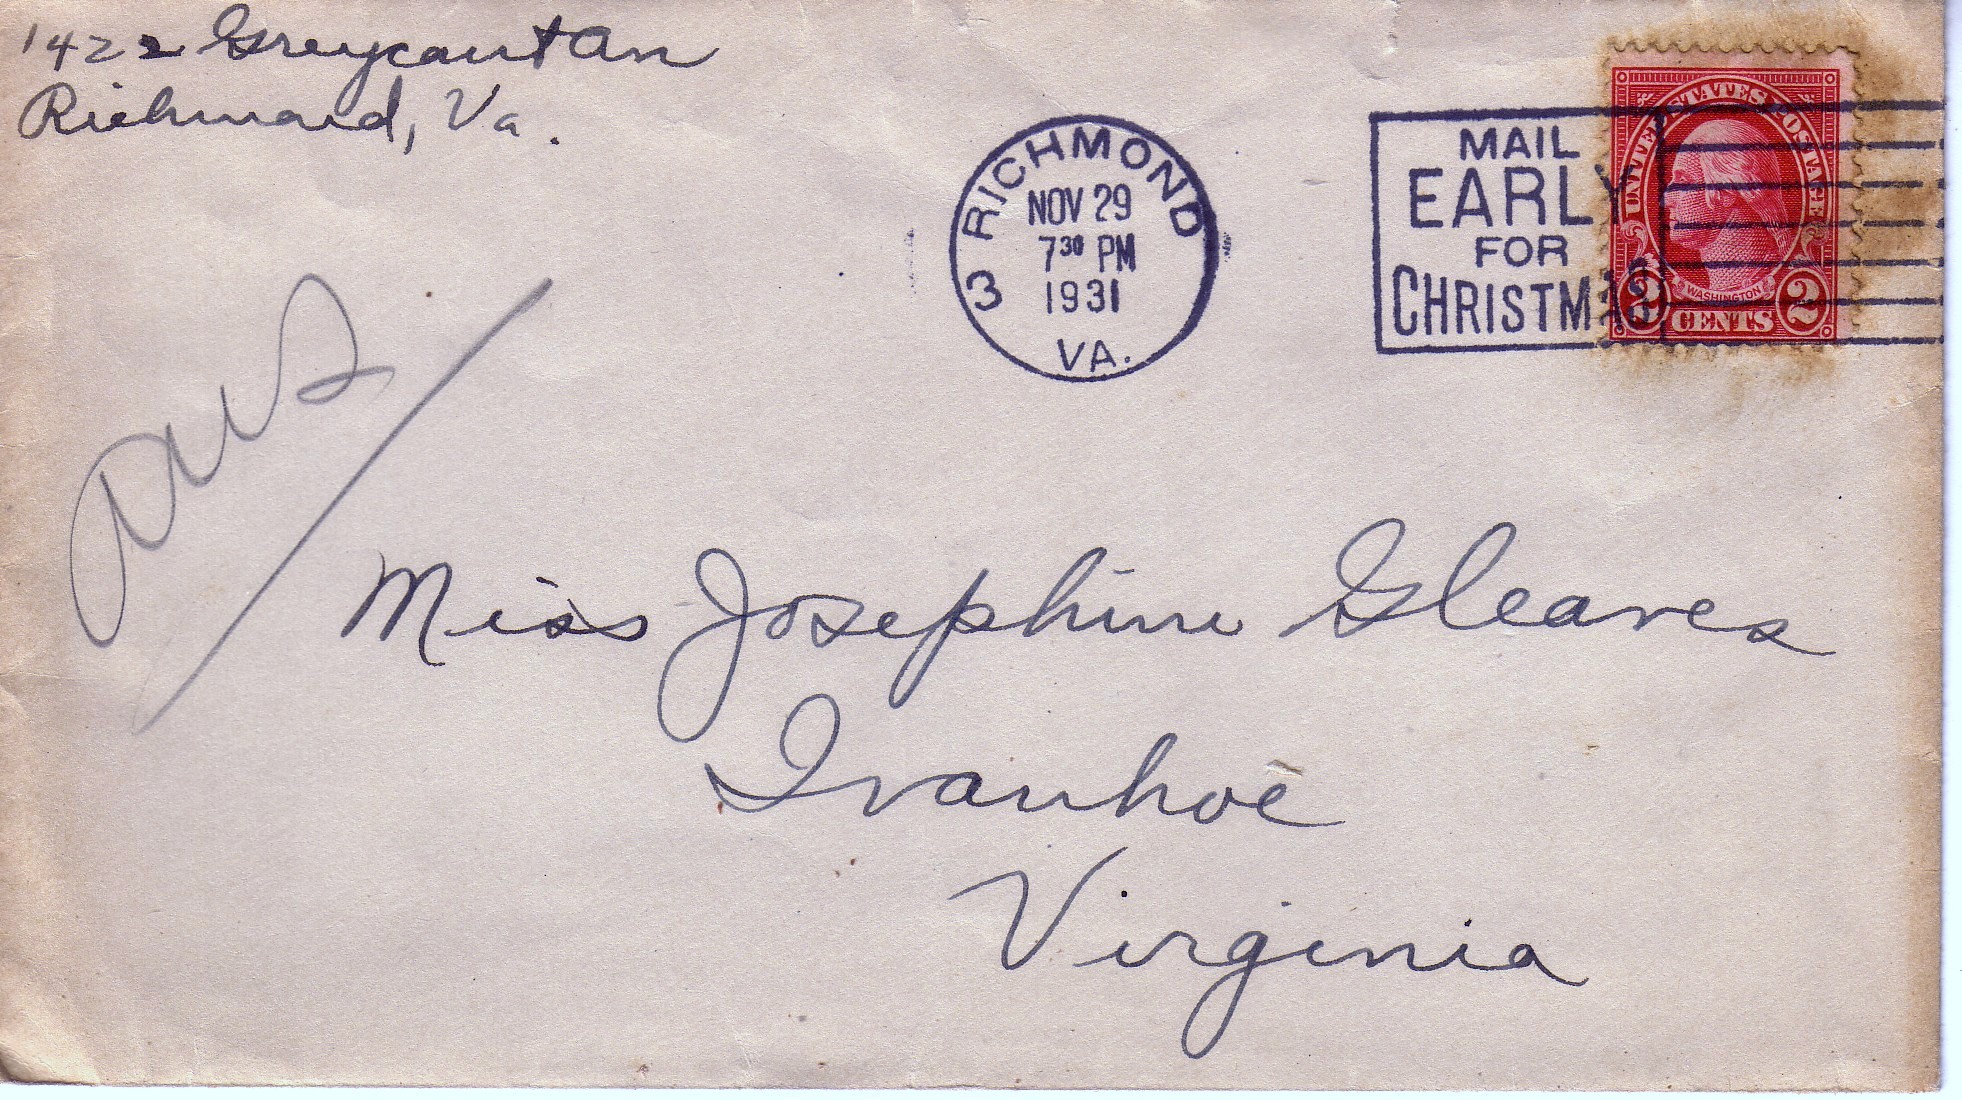 1422 Greycourt Av
Richmond, Va.
3 RICHMOND
NOV 29
7 30 PM
1931
VA.
MAIL
EARLY
FOR
CHRISTMAS
UNITED STATES POSTAGE
WASHINGTON
2 CENTS 2
Ans
Miss Josephine Gleaves
Ivanhoe
Virginia